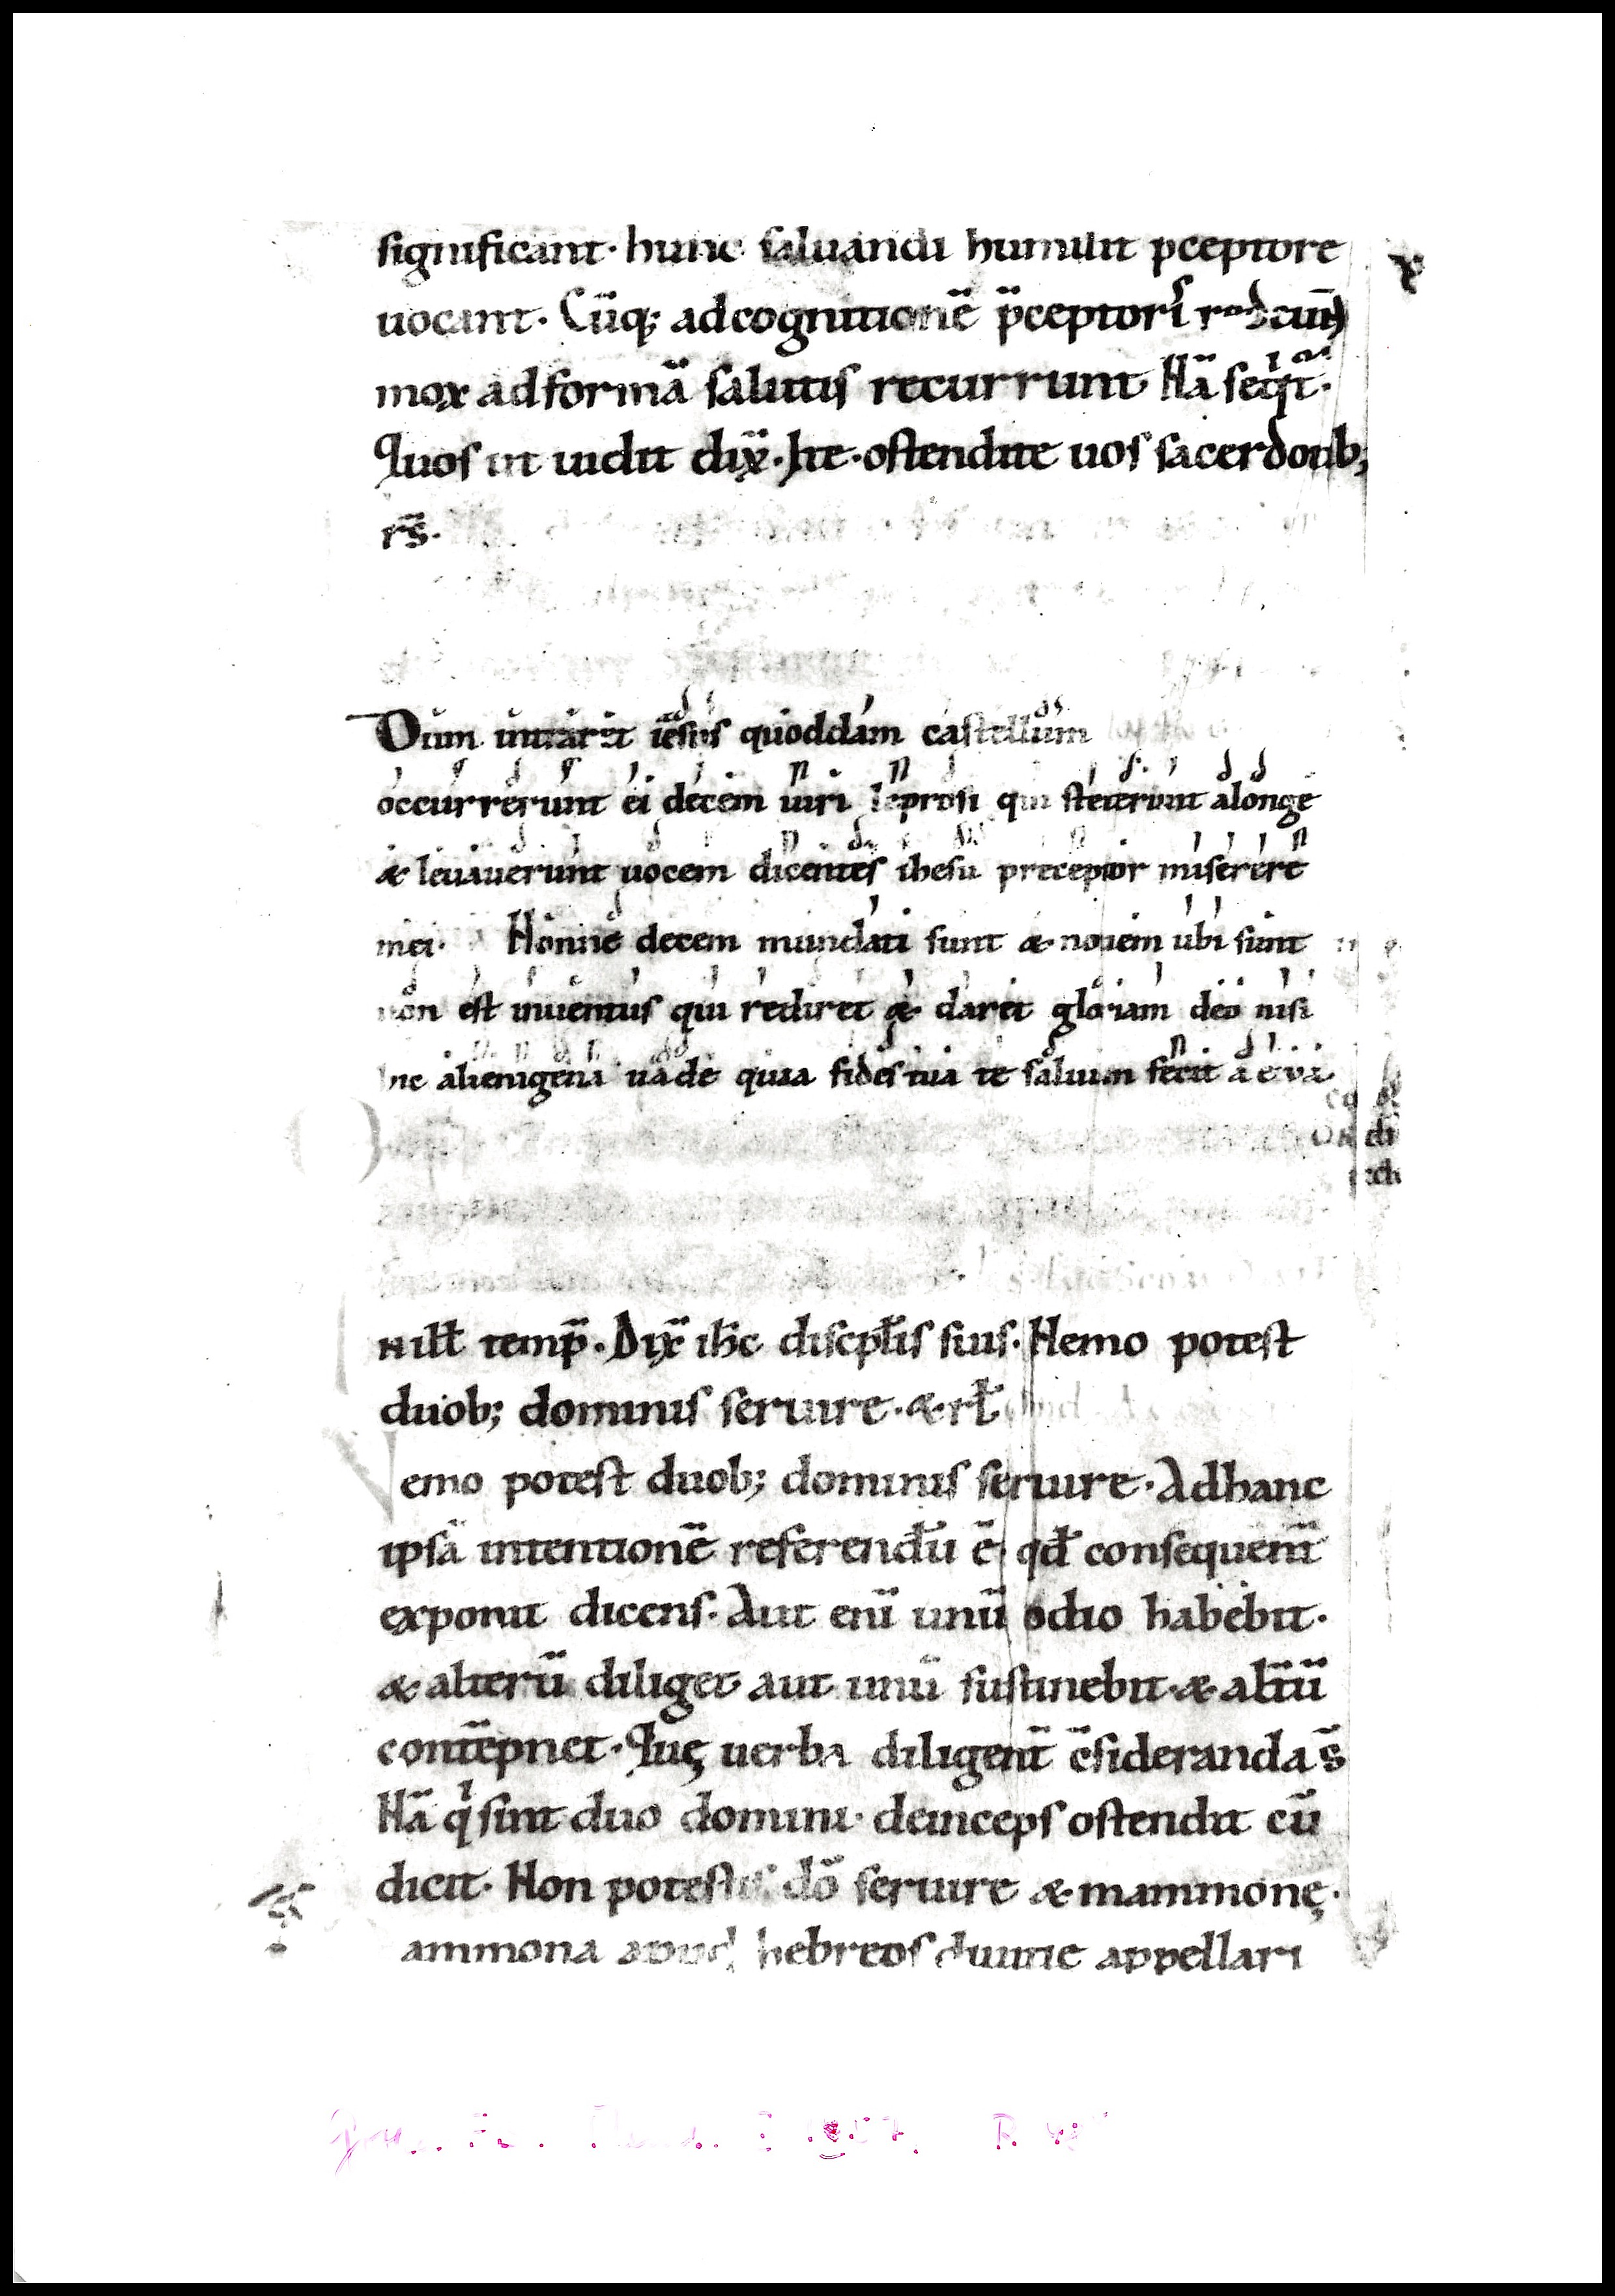 significant· hunc saluandi humilit p̄ceptorē
uocant· Cūq; ad cognitionē p̄ceptoris
mox ad formā salutis recurrunt Nā seqͥt·
Quos ut uidit dix̄· Ite· ostendite uos sacerdotib;
rs̄·
Dum intraret iesus quoddam castellum
occurrerunt ei decem uiri leprosi qui steterunt a longe
& leuauerunt uocem dicentes ihesu preceptor miserere
mei· Nonne decem mundati sunt & nouem ubi sunt
non est inuentus qui rediret & daret gloriam deo nisi
hic alienigena uade quia fides tua te saluum fecit aeua
In ill̄ temp̄· Dix̄ ih̄c discpl̄is suis· Nemo potest
duob; dominis seruire· & rl̄
Nemo potest duob; dominis seruire· Ad hanc
ipsā intentionē referendū ē qd̄ consequent̄
exponit dicens· Aut enī unū odio habebit·
& alterū diliget aut unū sustinebit· & alt̄ū
contēpnet· Quę uerba diligent̄ c̄sideranda s̄
Nā qͥ sint duo domini· deinceps ostendit cū
dicit· Non potestis dō seruire & mammonę·
ammona apud hebreos diuitie appellari